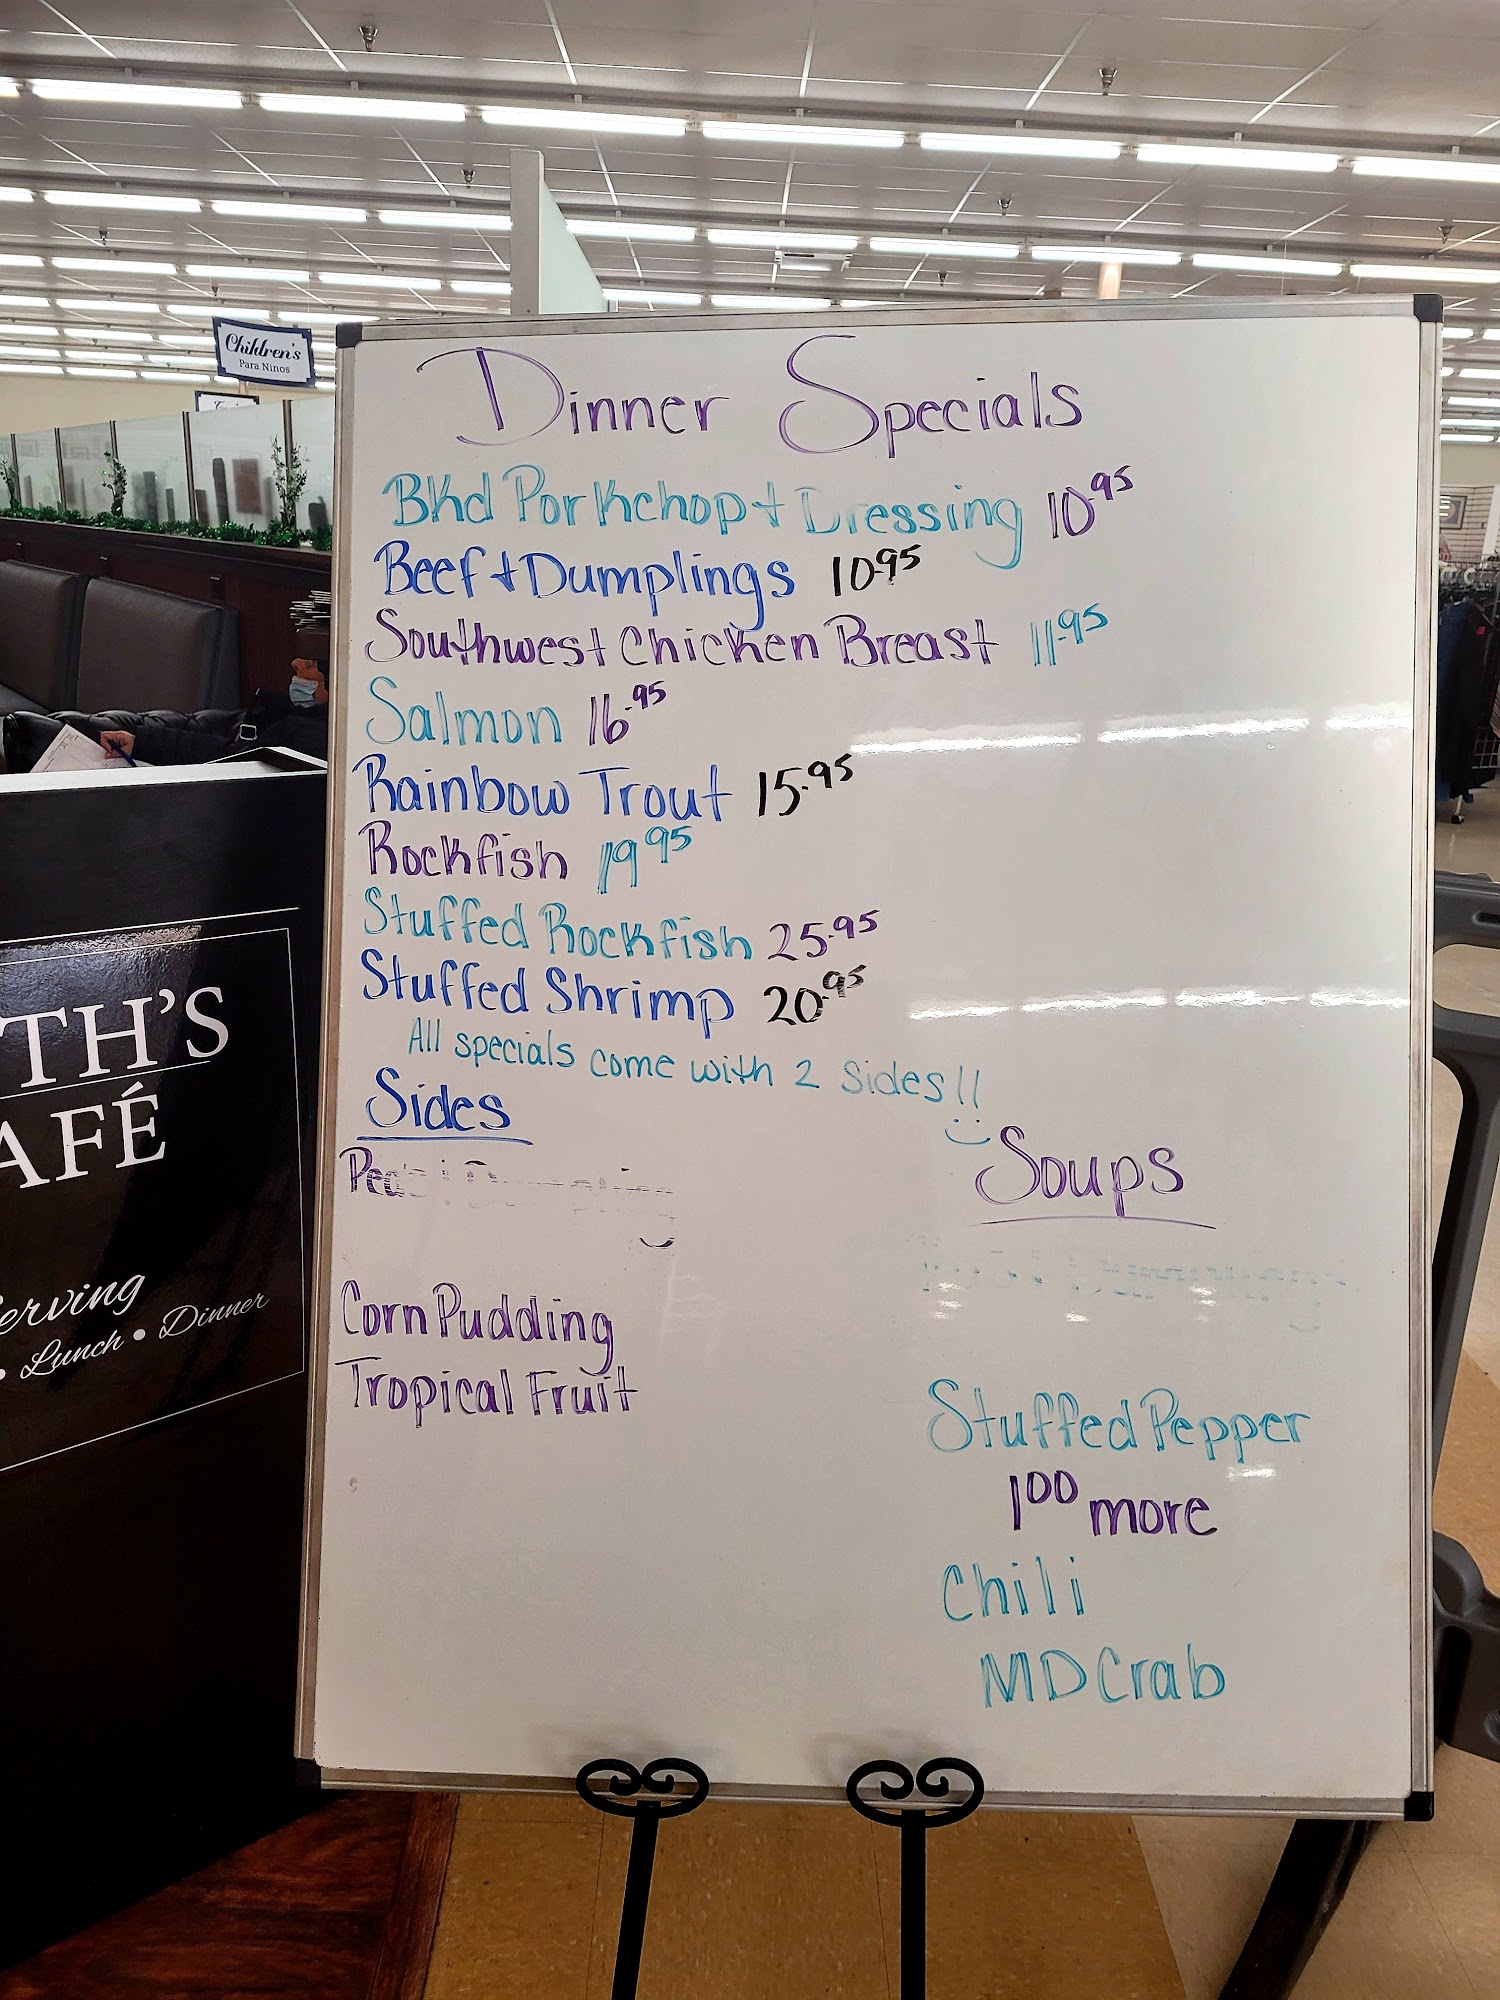 Children's
Para Ninos
Dinner Specials
Bkd Porkchop + Dressing 10.95
Beef + Dumplings 10.95
Southwest Chicken Breast 11.95
Salmon 16.95
Rainbow Trout 15.95
Rockfish 19 95
Stuffed Rockfish 25.95
Stuffed Shrimp 20.95
All specials come with 2 sides!!
Sides
Corn Pudding
Tropical Fruit
Soups
Stuffed Pepper
1 00 more
Chili
MD Crab
TH'S
AFÉ
erving
• Lunch • Dinner